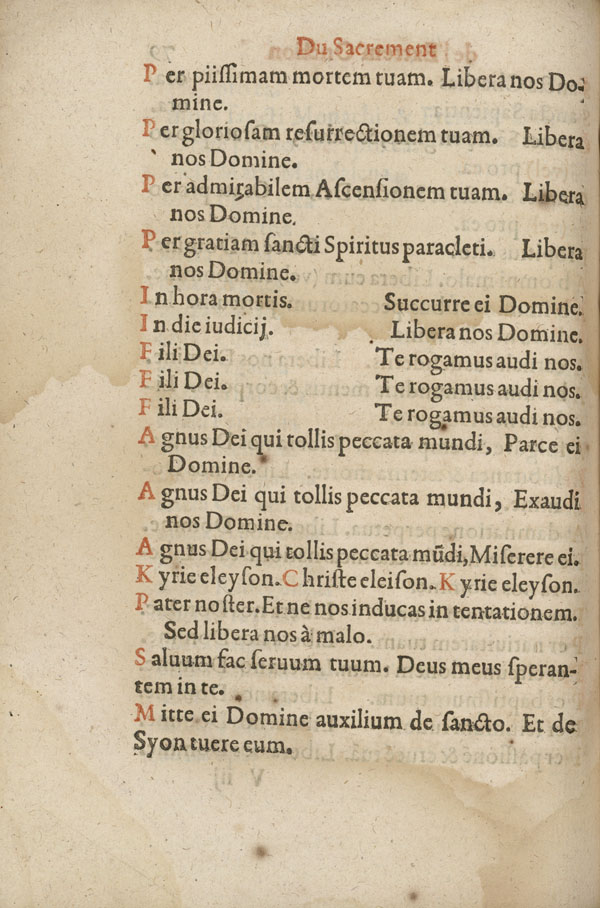 Du Sacrement
Per piissimam mortem tuam. Libera nos Do-
mine.
Per gloriosam resurrectionem tuam. Libera
nos Domine.
Per admirabilem Ascensionem tuam. Libera
nos Domine.
Per gratiam sancti Spiritus paracleti. Libera
nos Domine.
In hora mortis. Succurre ei Domine.
In die iudicij. Libera nos Domine.
Fili Dei. Te rogamus audi nos.
Fili Dei. Te rogamus audi nos.
Fili Dei. Te rogamus audi nos.
Agnus Dei qui tollis peccata mundi, Parce ei
Domine.
Agnus Dei qui tollis peccata mundi, Exaudi
nos Domine.
Agnus Dei qui tollis peccata mũdi, Miserere ei.
Kyrie eleyson. Christe eleison. Kyrie eleyson.
Pater noster. Et ne nos inducas in tentationem.
Sed libera nos à malo.
Saluum fac seruum tuum. Deus meus speran-
tem in te.
Mitte ei Domine auxilium de sancto. Et de
Syon tuere eum.